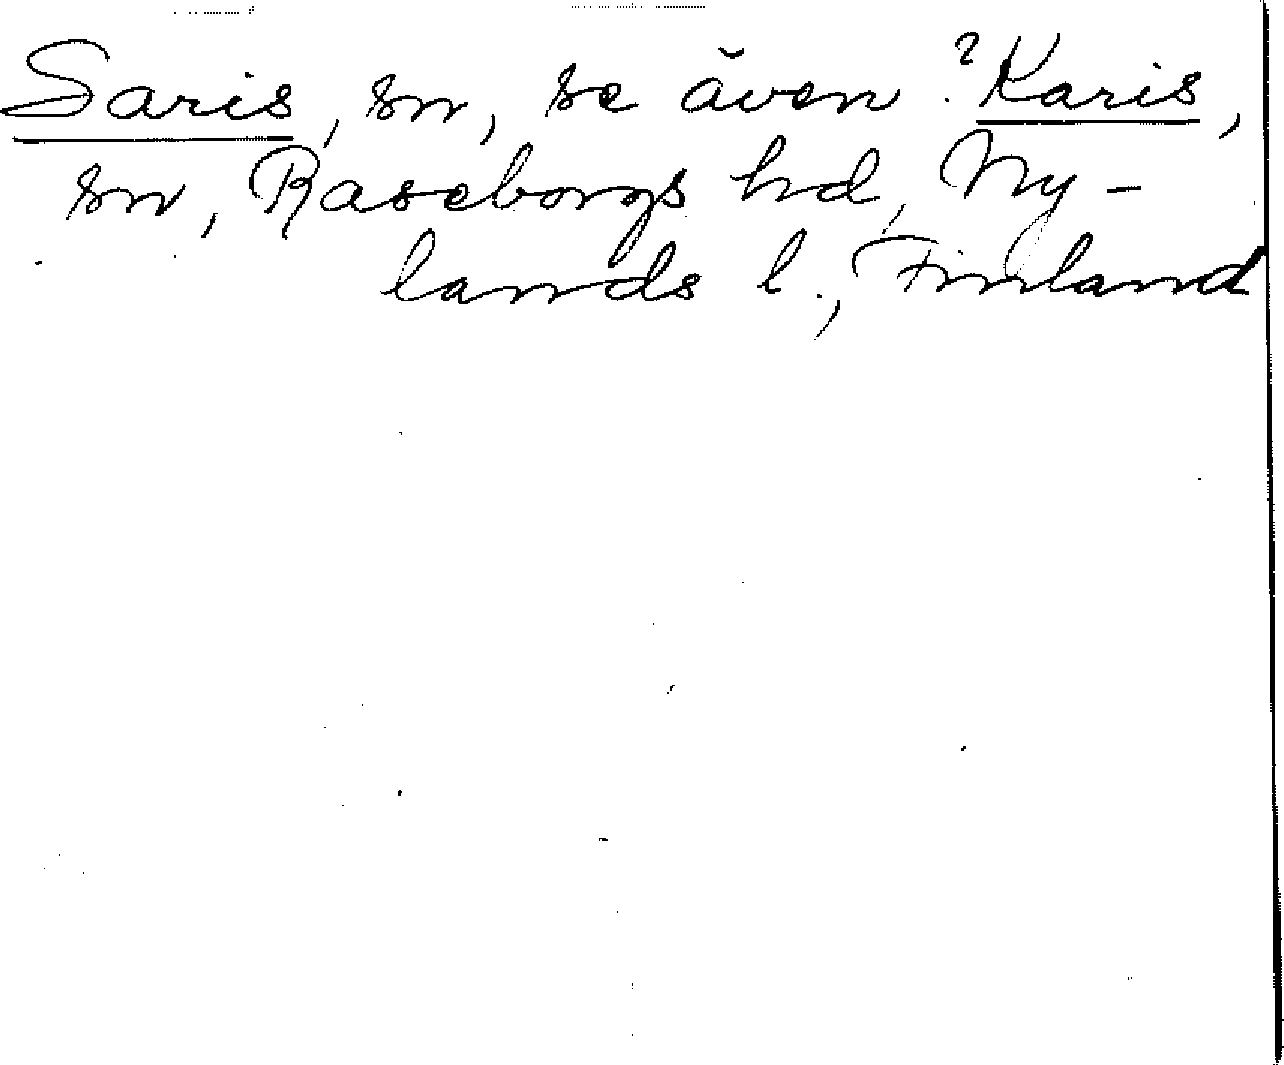 Saris, sn, se även ?Karis,
sn, Raseborgs hd, Ny-
lands l., Finland